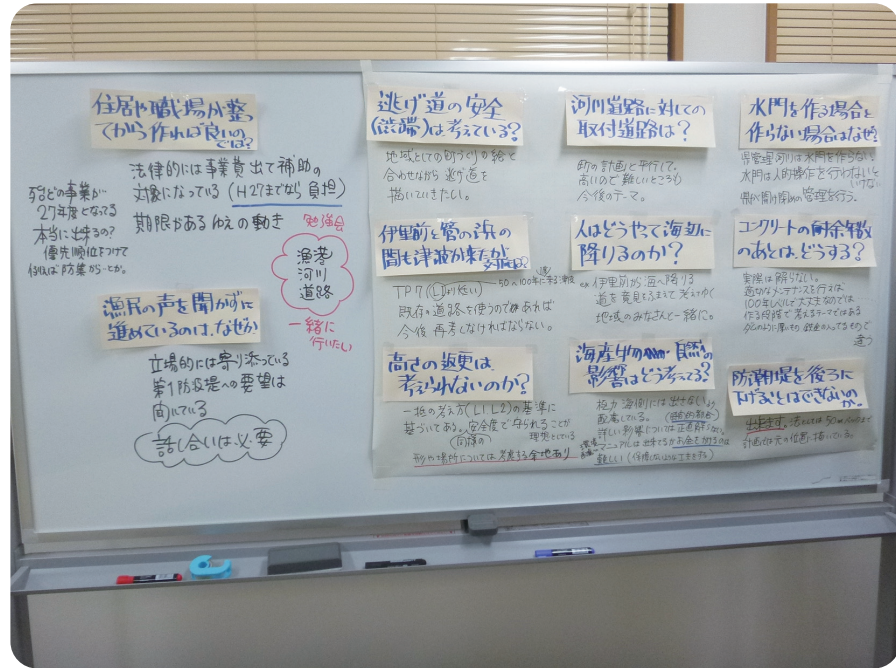 住居や職場が整っ
てから作れば良いの
では?
法律的には事業費出て補助の
対象になっている (H27までなら負担)
期限があるゆえの動き
ほとんどの事業が
27年度となってる
本当に出来るの?
優先順位をつけて
例えば防集から…とか。
勉強会
漁港
河川
道路
一緒に
行いたい
漁民の声を聞かずに
進めているのは、なぜか
立場的には寄り添っている
第1防波堤への要望は
聞いている
話し合いは必要
逃げ道の安全
(渋滞)は考えている?
地域としての町づくりの絵と
合わせながら逃げ道を
描いていきたい。
伊里前と管の浜の
間も津波が来たが
対応は?
既存の道路を使うのであれば
今後再考しなければならない。
高さの変更は、
考えられないのか?
一抱の考え方(L1、L2)の基準に
基づいてある。安全度で守られることが
理想としている
形や場所については、考慮する余地あり
河川道路に対しての
取付道路は?
町の計画と平行して。
高いので難しいところも
今後のテーマ。
人はどうやって海辺に
降りるのか?
ex 伊里前から海へ降りる
道を意見をふまえて考えてゆく
地域のみなさんと一緒に。
海産物・自然の
影響はどう考えてる?
極力海側には出さないよう
配慮している。
詳しい影響については正直解らない。
マニュアルは出来てるがお金をかけるのは
難しい
水門を作る場合と
作らない場合はなぜ?
県管理河川は水門を作らない
水門は人的操作を行わないと
いけない
県が開け閉めの管理を行う。
コンクリートの耐余年数
のあとは、どうする?
実際は解らない。
適切なメンテナンスを行えば
100年レベルで大丈夫なのでは
作る段階で考えるテーマではある
違う
防潮堤を後ろに
下げることはできないの
か。
出来ます。
計画では元の位置で描いている。